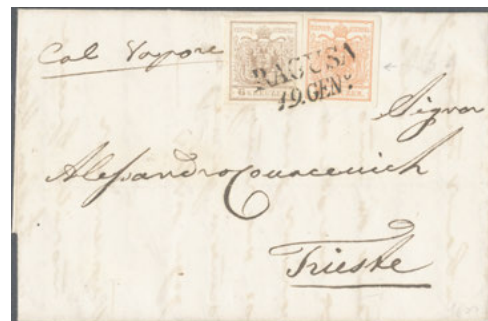 Col Vapore
RAGUSA
19. GEN.º
Signor
Alessandro Covacevich
Trieste